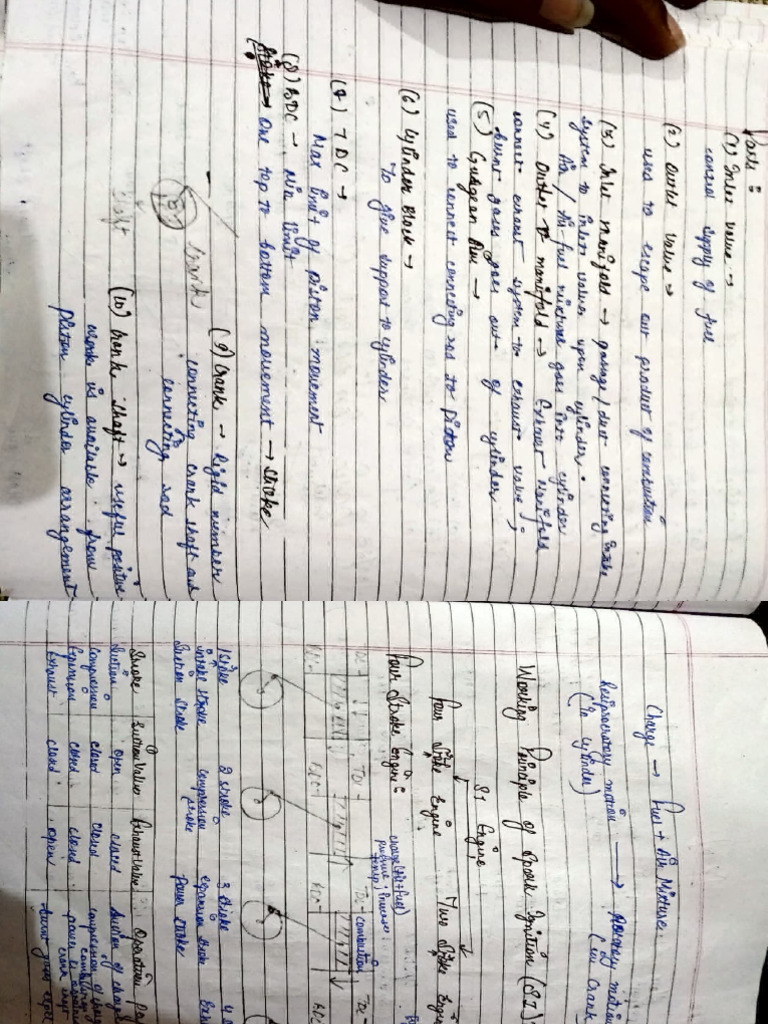 Parts :
(1) Inlet Valve →
control supply of fuel
(2) Outlet Valve →
used to escape out product of combustion
(3) Inlet manifold → passage/duct connecting intake
system to inlet valve upon cylinder.
Air / Air-fuel mixture goes into cylinder
(4) Outlet manifold → Exhaust manifold
connect exhaust system to exhaust valve,
burnt gases goes out of cylinder
(5) Gudgeon Pin →
used to connect connecting rod to Piston
(6) Cylinder Block →
To give support to cylinder
(7) TDC →
Max limit of piston movement
(8) BDC → Min limit
One top to bottom movement → stroke
(9) Crank → Rigid member
connecting crank shaft and
connecting rod
crank
shaft
(10) Crank shaft → useful positive
work is available from
Piston cylinder arrangement
Charge → Fuel + Air Mixture.
Reciprocatory motion → Rotatory motion
(In cylinder) (in Crank
Working Principle of Spark Ignition (SI)
SI Engine
Four Stroke Engine Two Stroke Engine
Four Stroke Engine :
charge (Air+fuel)
pressure, increases
temp
TDC TDC TDC combustion TDC
BDC BDC BDC BDC
1 stroke 2 stroke 3 stroke 4
intake stroke compression expansion stroke
Suction stroke stroke Power stroke
Stroke Suction Valve Exhaust Valve Operation
Suction open closed Suction of charge
Compression closed closed compression of charge
Expansion closed closed power is available
Exhaust closed open burnt gases